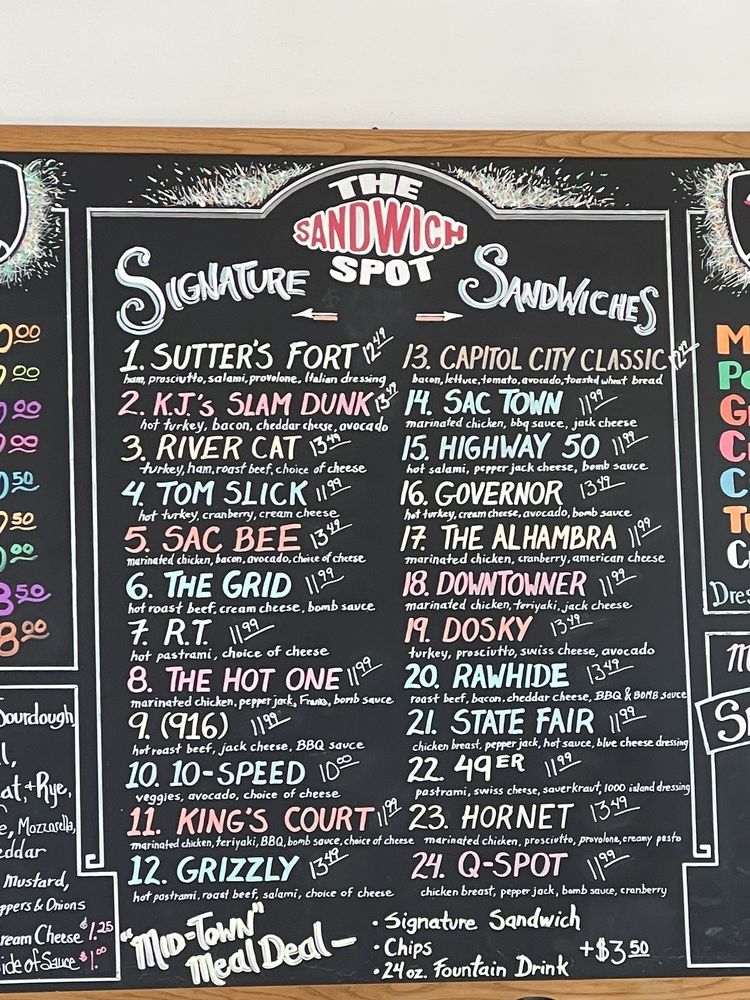 THE
SANDWICH
SPOT
SIGNATURE SANDWICHES
1. SUTTER'S FORT 12.49
ham, prosciutto, salami, provolone, Italian dressing
2. K.J.'s SLAM DUNK 13.49
hot turkey, bacon, cheddar cheese, avocado
3. RIVER CAT 13.49
turkey, ham, roast beef, choice of cheese
4. TOM SLICK 11.99
hot turkey, cranberry, cream cheese
5. SAC BEE 13.49
marinated chicken, bacon, avocado, choice of cheese
6. THE GRID 11.99
hot roast beef, cream cheese, bomb sauce
7. R.T. 11.99
hot pastrami, choice of cheese
8. THE HOT ONE 11.99
marinated chicken, pepper jack, Franks, bomb sauce
9. (916) 11.99
hot roast beef, jack cheese, BBQ sauce
10. 10-SPEED 10.00
veggies, avocado, choice of cheese
11. KING'S COURT 11.99
marinated chicken, teriyaki, BBQ, bomb sauce, choice of cheese
12. GRIZZLY 13.49
hot pastrami, roast beef, salami, choice of cheese
13. CAPITOL CITY CLASSIC
bacon, lettuce, tomato, avocado, toasted wheat bread
14. SAC TOWN 11.99
marinated chicken, bbq sauce, jack cheese
15. HIGHWAY 50 11.99
hot salami, pepper jack cheese, bomb sauce
16. GOVERNOR 13.49
hot turkey, cream cheese, avocado, bomb sauce
17. THE ALHAMBRA 11.99
marinated chicken, cranberry, american cheese
18. DOWNTOWNER 11.99
marinated chicken, teriyaki, jack cheese
19. DOSKY 13.49
turkey, prosciutto, swiss cheese, avocado
20. RAWHIDE 13.49
roast beef, bacon, cheddar cheese, BBQ & BOMB sauce
21. STATE FAIR 11.99
chicken breast, pepper jack, hot sauce, blue cheese dressing
22. 49ER 11.99
pastrami, swiss cheese, sauerkraut, 1000 island dressing
23. HORNET 13.49
marinated chicken, prosciutto, provolone, creamy pesto
24. Q-SPOT 11.99
chicken breast, pepper jack, bomb sauce, cranberry
"MID-TOWN"
Meal Deal -
• Signature Sandwich
• Chips +$3.50
• 24 oz. Fountain Drink
Sourdough,
at, + Rye,
Mozzarella,
eddar
Mustard,
ppers & Onions
ream Cheese $1.25
ide of Sauce $1.00